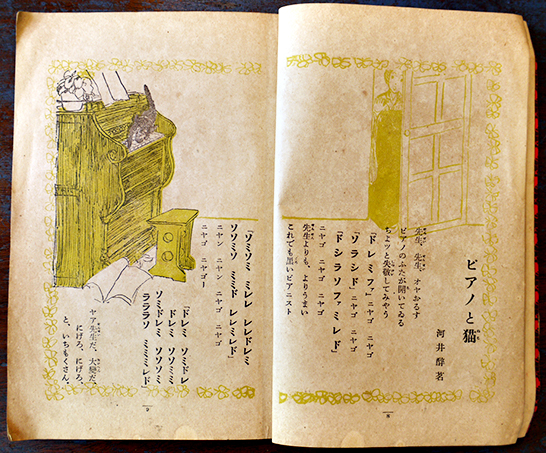 ピアノと猫
河井酔茗
先生、先生、オヤおるす
ピアノのふたが開いてゐる
ちよッと失敬してみやう
「ドレミファ」ニヤゴ ニヤゴ
「ソラシド」ニヤゴ ニヤゴ
ニヤゴ ニヤゴ ニヤゴ ニヤゴ
「ドシラソファミレド」
先生よりも、よりうまい
これでも黒いピアニスト
8
「ソソソミ ミレレ レレドレミ
ソソミソ ミミド レレミレド」
ニヤン ニヤン ニヤゴ ニヤゴ
ニヤゴ ニヤゴ ニヤゴー
「ドレミ ソミドレ
ドレミ ソソミミ
ソミドレミ ソソソミ
ララララソ ミミミレド」
ヤア先生だ、大變だ、
にげろ、にげろ、
と、いちもくさん。
9